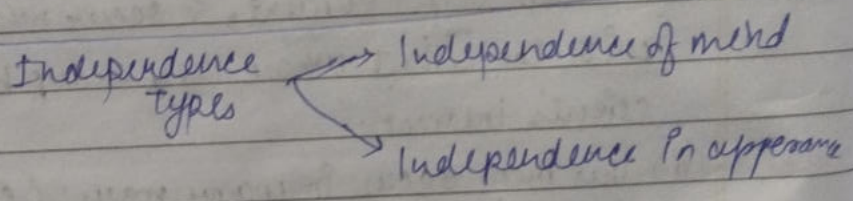 Independence types
Independence of mind
Independence in apperance